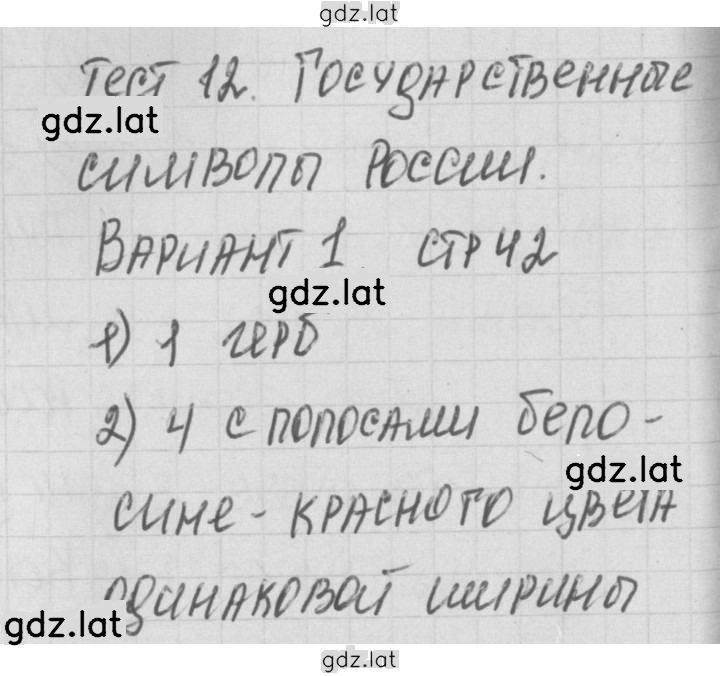 gdz.lat
Тест 12. Государственные
gdz.lat
символы России.
Вариант 1 стр 42
gdz.lat
1) 1 герб
2) 4 с полосами бело-
gdz.lat
сине-красного цвета
одинаковой ширины
gdz.lat
gdz.lat